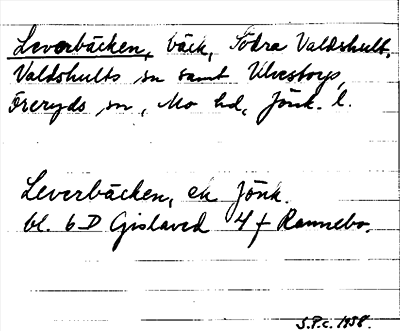 Leverbäcken, bäck, Södra Valdshult,
Valdshults sn samt Ulvestorp,
Öreryds sn, Mo hd, Jönk. l.
Leverbäcken, ek Jönk.
bl. 6 D Gislaved 4 f Rannebo.
S.P.c. 1958.